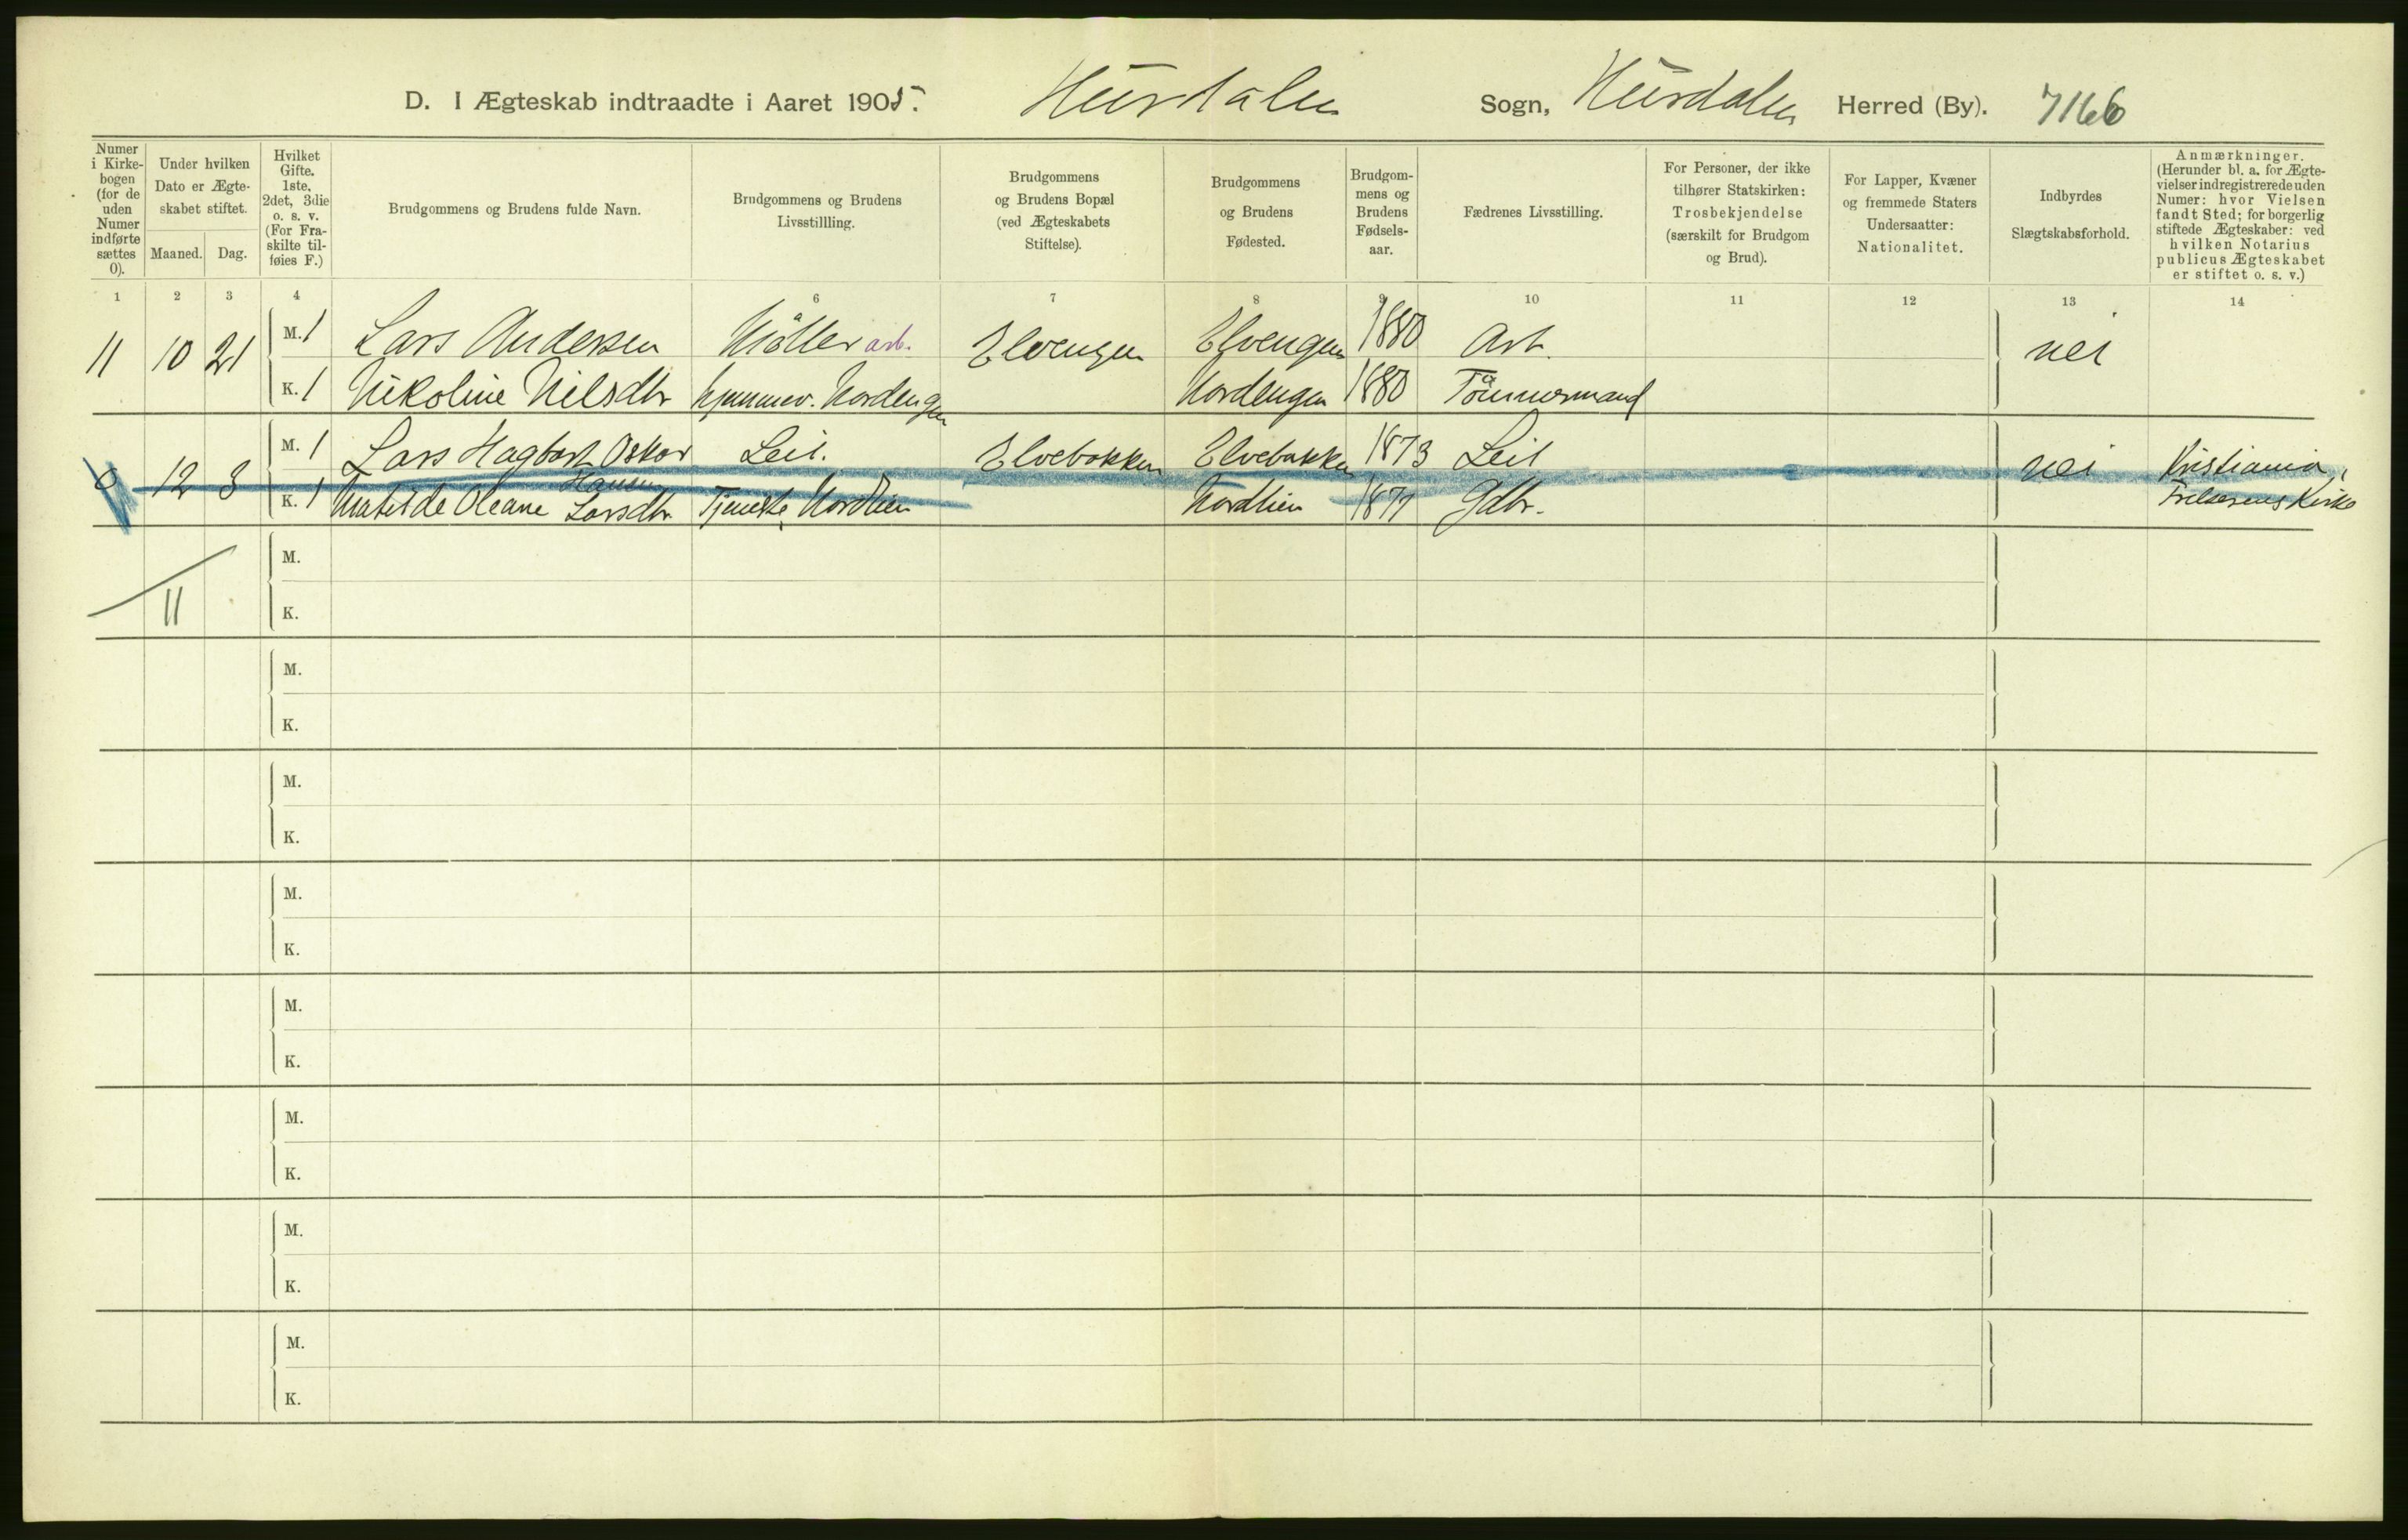 D. I Ægteskab indtraadte i Aaret 1905. Hurdalen Sogn, Hurdalen Herred (By). 7166
Numer i Kirke-bogen (for de uden Numer indførte sættes 0).
Under hvilken Dato er Ægte-skabet stiftet.
Maaned. Dag.
Hvilket Gifte. 1ste, 2det, 3die o. s. v. (For Fra-skilte til-føies F.)
Brudgommens og Brudens fulde Navn.
Brudgommens og Brudens Livsstillling.
Brudgommens og Brudens Bopæl (ved Ægteskabets Stiftelse).
Brudgommens og Brudens Fødested.
Brudgom-mens og Brudens Fødsels-aar.
Fædrenes Livsstilling.
For Personer, der ikke tilhører Statskirken: Trosbekjendelse (særskilt for Brudgom og Brud).
For Lapper, Kvæner og fremmede Staters Undersaatter: Nationalitet.
Indbyrdes Slægtskabsforhold.
Anmærkninger. (Herunder bl. a. for Ægte-vielser indregistrerede uden Numer: hvor Vielsen fandt Sted; for borgerlig stiftede Ægteskaber: ved hvilken Notarius publicus Ægteskabet er stiftet o. s. v.)
1 2 3 4 6 7 8 9 10 11 12 13 14
11 10 21 M. 1 Lars Andersen Möller arb. Elvengen Elvengen 1880 Arb. nei
K. 1 Nikoline Nilsdtr hjemmev. Nordengen Nordengen 1880 Tömmermand
0 12 3 M. 1 Lars Hagbart Oskar Hansen Leil. Elvebakken Elvebakken 1873 Leil nei Kristiania,
K. 1 Matilde Oleane Larsdtr. Tjeneste, Nordlien Nordlien 1877 Gdbr. Frelserens Kirke
11
M.
K.
M.
K.
M.
K.
M.
K.
M.
K.
M.
K.
M.
K.
M.
K.